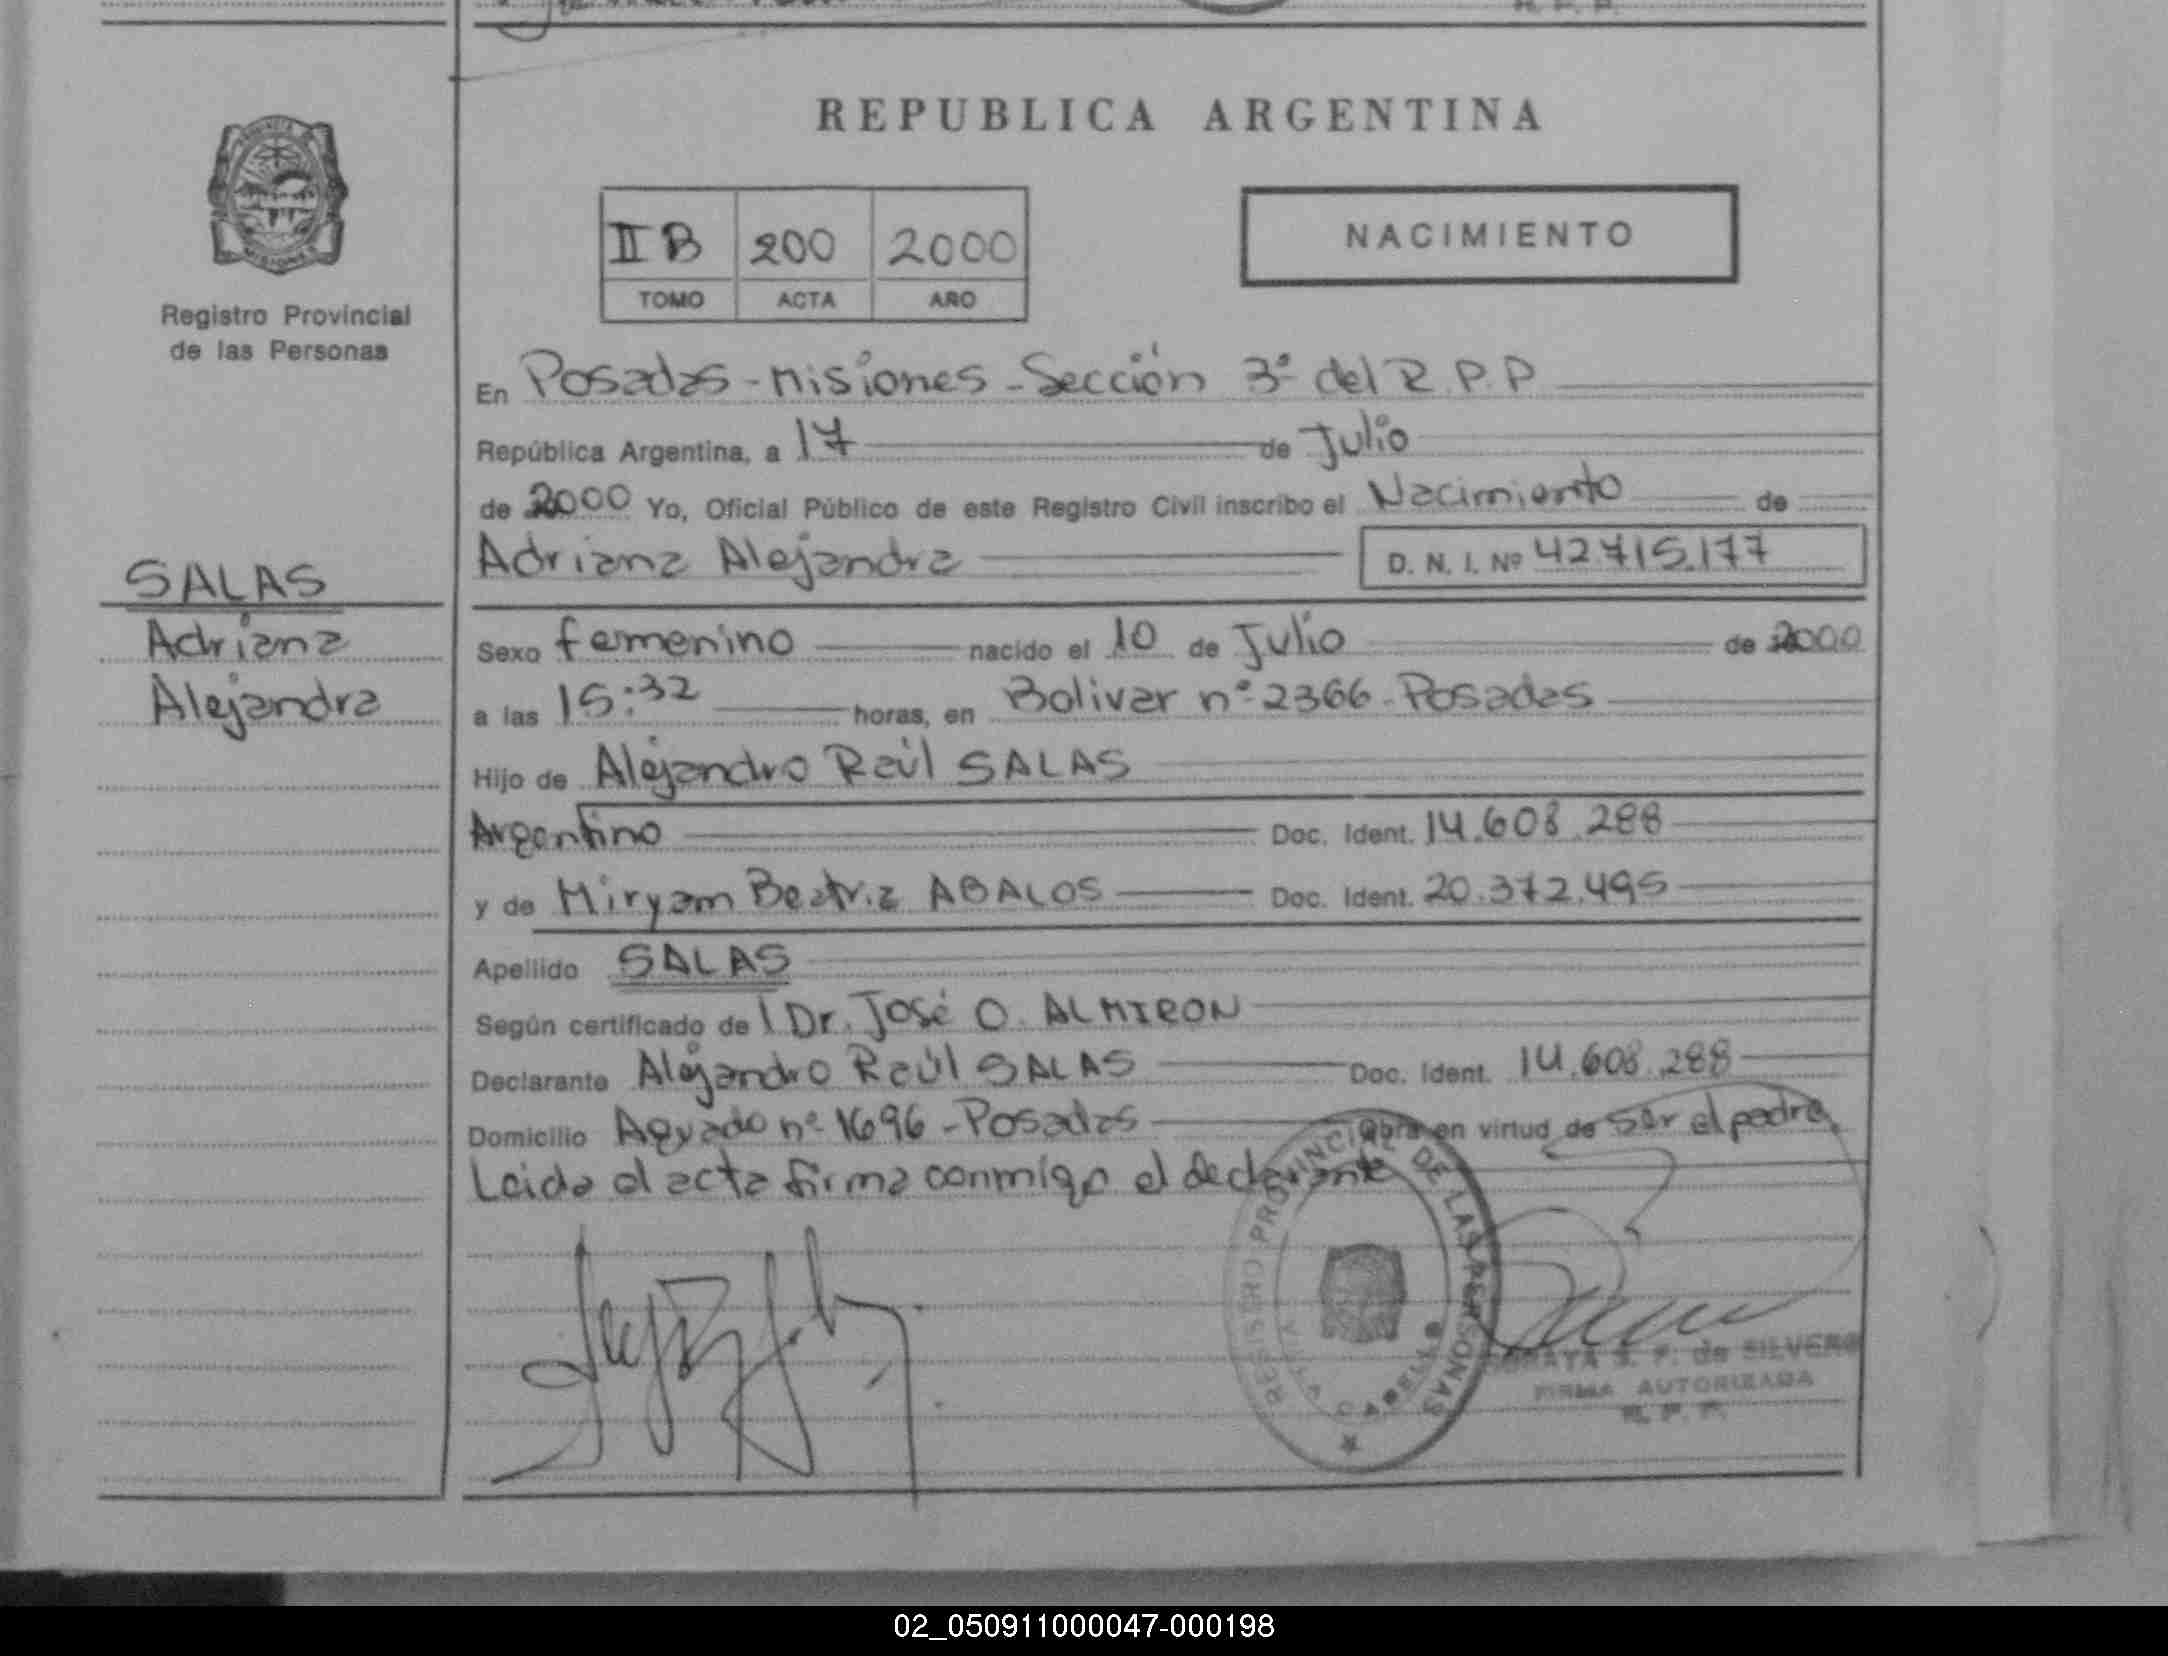 REPUBLICA ARGENTINA
Registro Provincial
de las Personas
II B 200 2000
TOMO ACTA AÑO
NACIMIENTO
En Posadas - Misiones - Sección 3ª del R.P.P
República Argentina, a 17 de Julio
de 2000 Yo, Oficial Público de este Registro Civil inscribo el Nacimiento de
Adriana Alejandra D. N. I. Nº 42.715.177
SALAS
Adriana
Alejandra
Sexo femenino nacido el 10 de Julio de 2000
a las 15:32 horas, en Bolivar nº 2366 - Posadas
Hijo de Alejandro Raúl SALAS
Argentino Doc. Ident. 14.608.288
y de Miryam Beatriz ABALOS Doc. Ident. 20.372.495
Apellido SALAS
Según certificado del Dr. José O. ALMIRON
Declarante Alejandro Raúl SALAS Doc. Ident. 14.608.288
Domicilio Aguado nº 1696 - Posadas Obra en virtud de ser el padre
Leida el acta firma conmigo el declarante
REGISTRO PROVINCIAL DE LAS PERSONAS
S. F. de SILVERO
FIRMA AUTORIZADA
R. P. P.
02_050911000047-000198